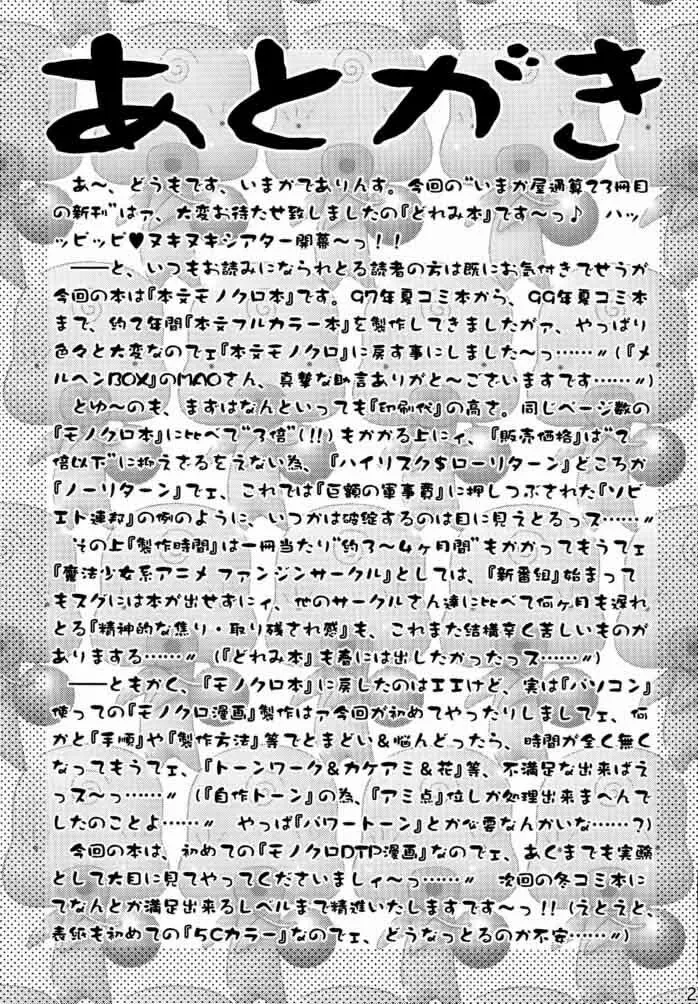 あとがき
あ〜、どうもです、いまかでありんす。今回の"いまか屋通算23冊目
の新刊"はァ、大変お待たせ致しましたの『どれみ本』です〜っ♪　ハッ
ッピッピ♥ヌキヌキシアター開幕〜っ!!
――と、いつもお読みになられとる読者の方は既にお気付きでせうが
今回の本は『本文モノクロ本』です。97年夏コミ本から、99年夏コミ本
まで、約2年間『本文フルカラー本』を製作してきましたがァ、やっぱり
色々と大変なのでェ『本文モノクロ』に戻す事にしました〜っ……〃(『メ
ルヘンBOX』のMAOさん、真摯な助言ありがと〜ございますです……〃)
とゆ〜のも、まずはなんといっても『印刷代』の高さ。同じページ数の
『モノクロ本』に比べて"3倍"(!!)もかかる上にィ、『販売価格』は"2
倍以下"に抑えざるをえない為、『ハイリスク$ローリターン』どころか
『ノーリターン』でェ、これでは『巨額の軍事費』に押しつぶされた『ソビ
エト連邦』の例のように、いつかは破綻するのは目に見えとるっス……〃
その上『製作時間』は一冊当たり"約3〜4ヶ月間"もかかってもうてェ
『魔法少女系アニメ ファンジンサークル』としては、『新番組』始まって
もスグには本が出せずにィ、他のサークルさん達に比べて何ヶ月も遅れ
とる『精神的な焦り・取り残され感』も、これまた結構辛く苦しいものが
ありまする……〃　(『どれみ本』も春には出したかったっス……〃)
――ともかく、『モノクロ本』に戻したのはエエけど、実は『パソコン』
使っての『モノクロ漫画』製作はァ今回が初めてやったりしましてェ、何
かと『手順』や『製作方法』等でとまどい＆悩んどったら、時間が全く無く
なってもうてェ、『トーンワーク＆カケアミ＆花』等、不満足な出来ばえ
っス〜っ……〃　(『自作トーン』の為、『アミ点』位しか処理出来まへんで
したのことよ……〃　やっぱ『パワートーン』とか必要なんかいな……？)
今回の本は、初めての『モノクロDTP漫画』なのでェ、あくまでも実験
として大目に見てやってくださいましィ〜っ……〃　次回の冬コミ本に
てなんとか満足出来るレベルまで精進いたしますです〜っ!!(えとえと、
表紙も初めての『5Cカラー』なのでェ、どうなっとるのか不安……〃)
2